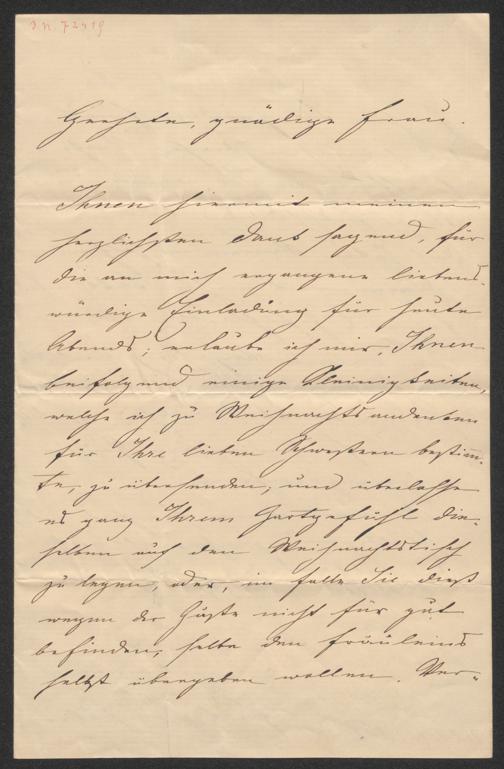 I. N. 72419
Geehrte, gnädige Frau.
Ihnen hiermit meinen
herzlichsten Dank sagend, für
die an mich ergangene liebens-
würdige Einladung für heute
Abends; erlaube ich mir, Ihnen
beifolgend einige Kleinigkeiten,
welche ich zu Weihnachtsandenken
für Ihre lieben Schwestern bestim̅-
te, zu übersenden, und überlasse
es ganz Ihrem Zartgefühl die-
selben auf den Weihnachtstisch
zu legen, oder, im Falle Sie dieß
wegen der Gäste nicht für gut
befinden, selbe den Fräuleins
selbst übergeben wollen. Ver-